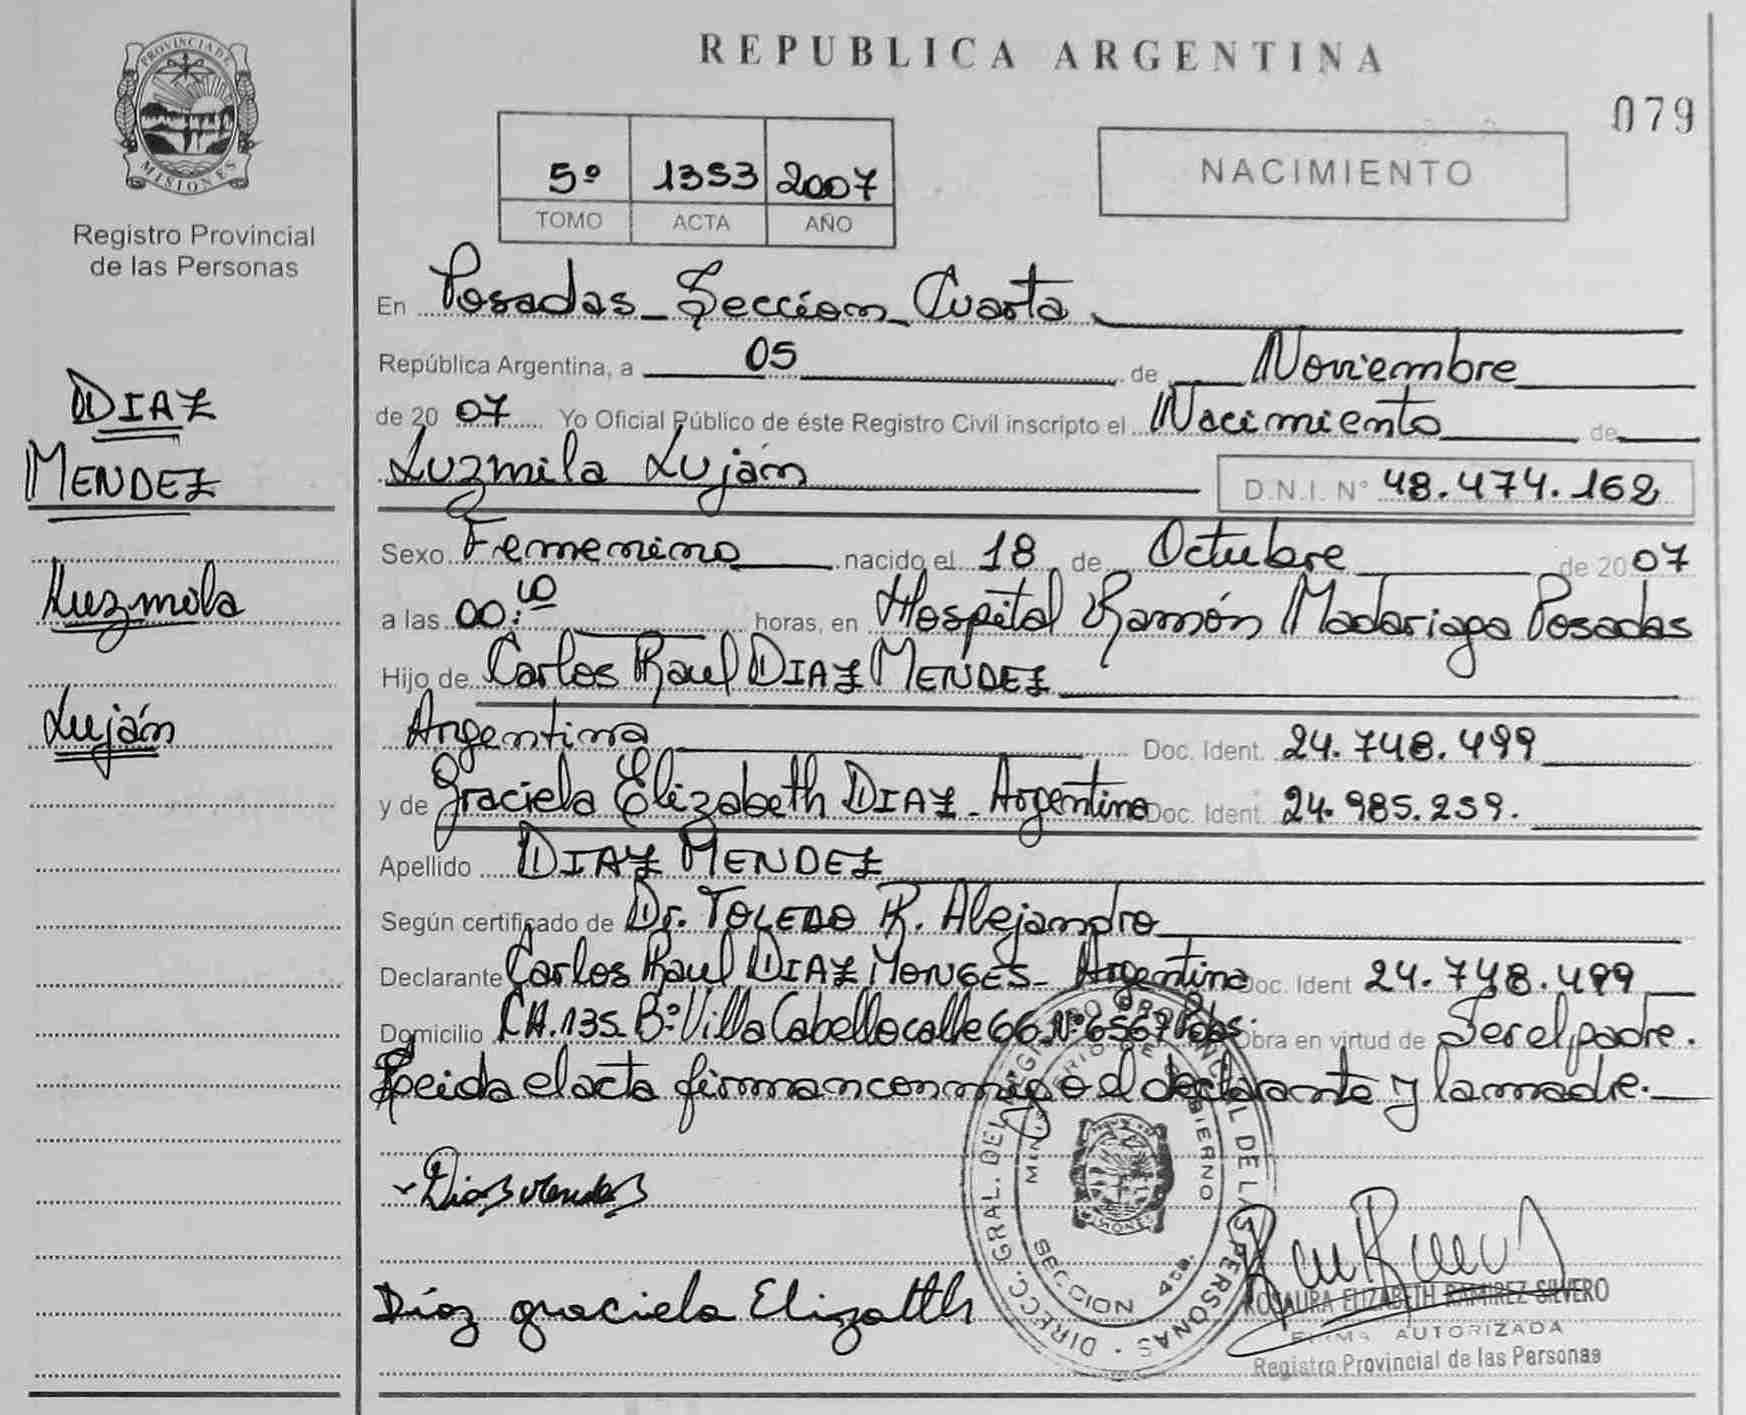 PROVINCIA DE
MISIONES
Registro Provincial
de las Personas
DIAZ
MENDEZ
Luzmila
Luján
REPUBLICA ARGENTINA
079
5º 1353 2007
TOMO ACTA AÑO
NACIMIENTO
En Posadas_Sección_Cuarta
República Argentina, a 05 de Noviembre
de 2007 Yo Oficial Público de éste Registro Civil inscripto el Nacimiento de
Luzmila Luján D.N.I. Nº 48.474.162
Sexo Femenino nacido el 18 de Octubre de 2007
a las 00:10 horas, en Hospital Ramón Madariaga Posadas
Hijo de Carlos Raul DIAZ MENDEZ
Argentina Doc. Ident. 24.748.499
y de Graciela Elizabeth DIAZ - Argentina Doc. Ident. 24.985.259.
Apellido DIAZ MENDEZ
Según certificado de Dr. TOLEDO R. Alejandro
Declarante Carlos Raul DIAZ MONGES - Argentina Doc. Ident 24.748.499
Domicilio CH.135 Bº Villa Cabello calle 66 Nº 6567 Pdas. Obra en virtud de Ser el padre.
Leida el acta firman conmigo el declarante y la madre.
Diaz Mendez
Díaz graciela Elizabeth
DIRECC. GRAL. DEL REGISTRO PROVINCIAL DE LAS PERSONAS
MINISTERIO DE GOBIERNO
SECCION 4ta.
MISIONES
ROSAURA ELIZABETH RAMIREZ SILVERO
FIRMA AUTORIZADA
Registro Provincial de las Personas